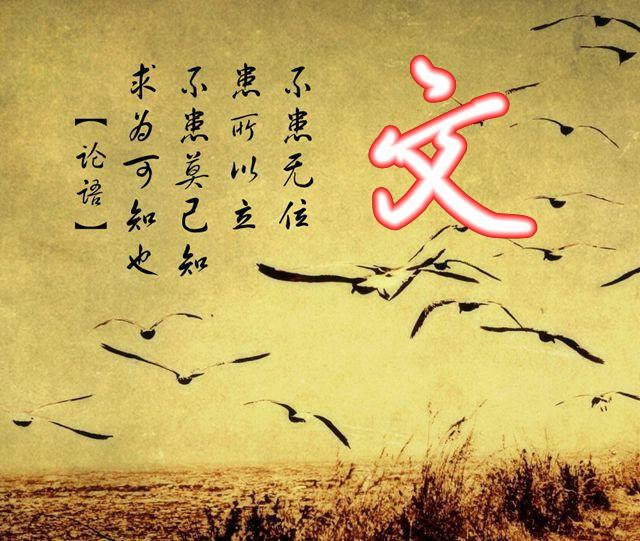 交
不患无位
患所以立
不患莫己知
求为可知也
【论语】